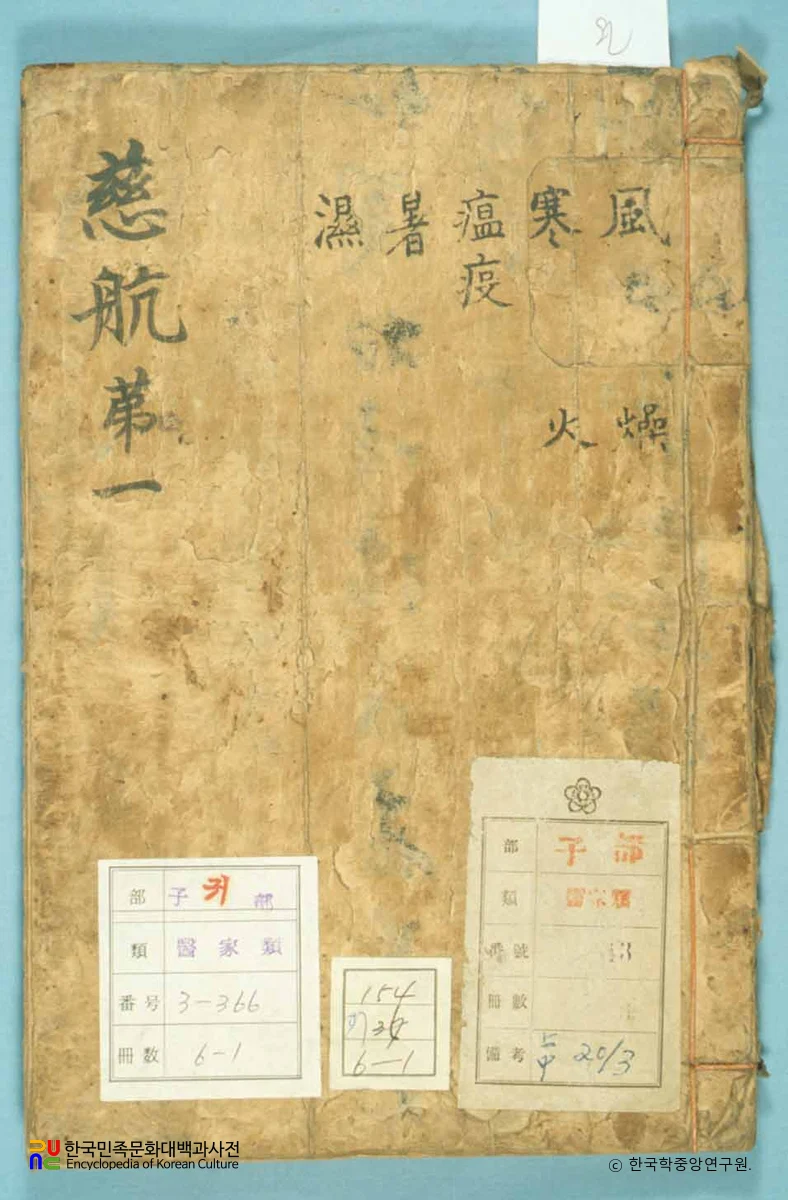 慈航苐一
風
寒
瘟疫
暑
濕
燥
火
部 子 귀 部
類 醫家類
番号 3-366
冊数 6-1
154
6-1
部 子部
類 醫家類
番號 43
冊數
備考 20/3
한국민족문화대백과사전
Encyclopedia of Korean Culture
© 한국학중앙연구원.